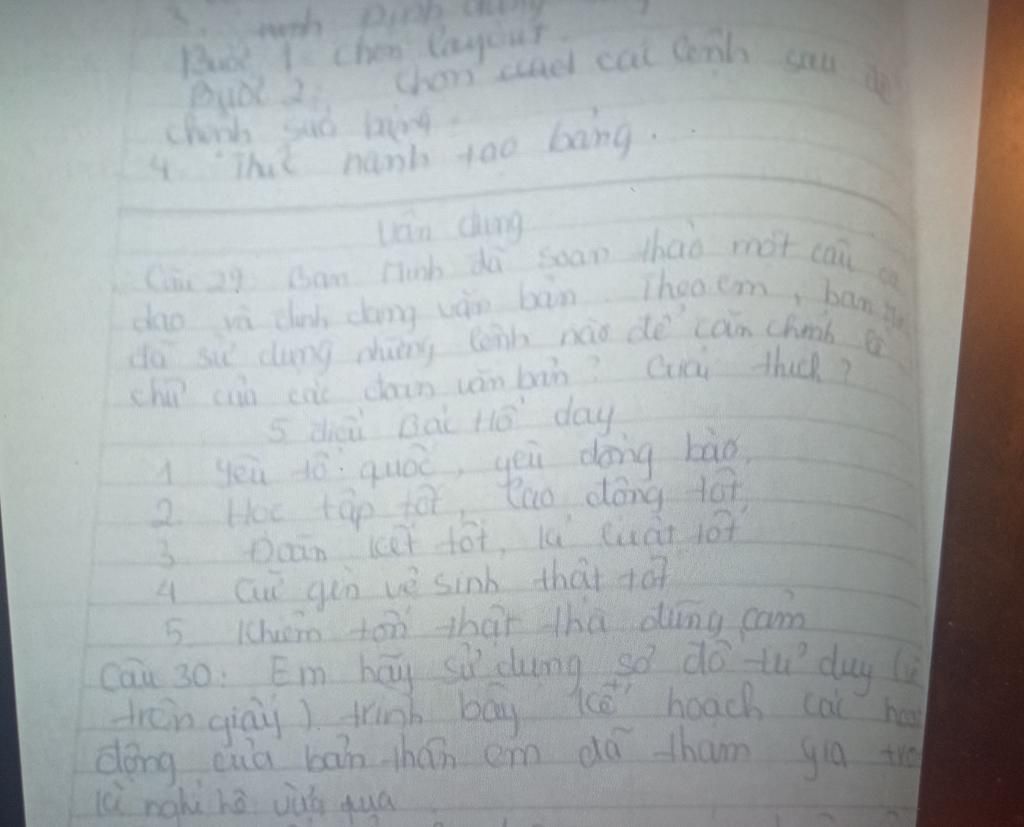 3.
Bước 1 chọn layout.
Bước 2: chọn các lệnh sau để
chỉnh sửa bảng.
4. Thực hành tạo bảng.
Vận dụng
Câu 29. Bạn Minh đã soạn thảo một câu ca
dao và định dạng văn bản. Theo em, bạn
đã sử dụng những lệnh nào để căn chỉnh lề
chữ của các đoạn văn bản? Giải thích?
5 điều Bác Hồ dạy
1 Yêu tổ quốc, yêu đồng bào
2. Học tập tốt, lao động tốt
3 Đoàn kết tốt, kỉ luật tốt
4 Giữ gìn vệ sinh thật tốt
5 Khiêm tốn thật thà dũng cảm
Câu 30: Em hãy sử dụng sơ đồ tư duy
trên giấy) trình bày kế hoạch các hoạt
động của bản thân em đã tham gia
kì nghỉ hè vừa qua